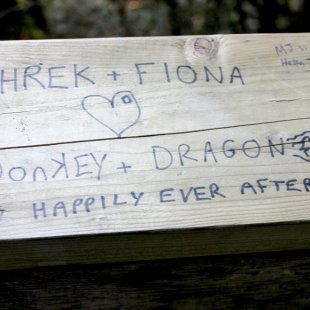 HREK + FIONA
MJ
DonKEY + DRAGON
HAPPILY EVER AFTER